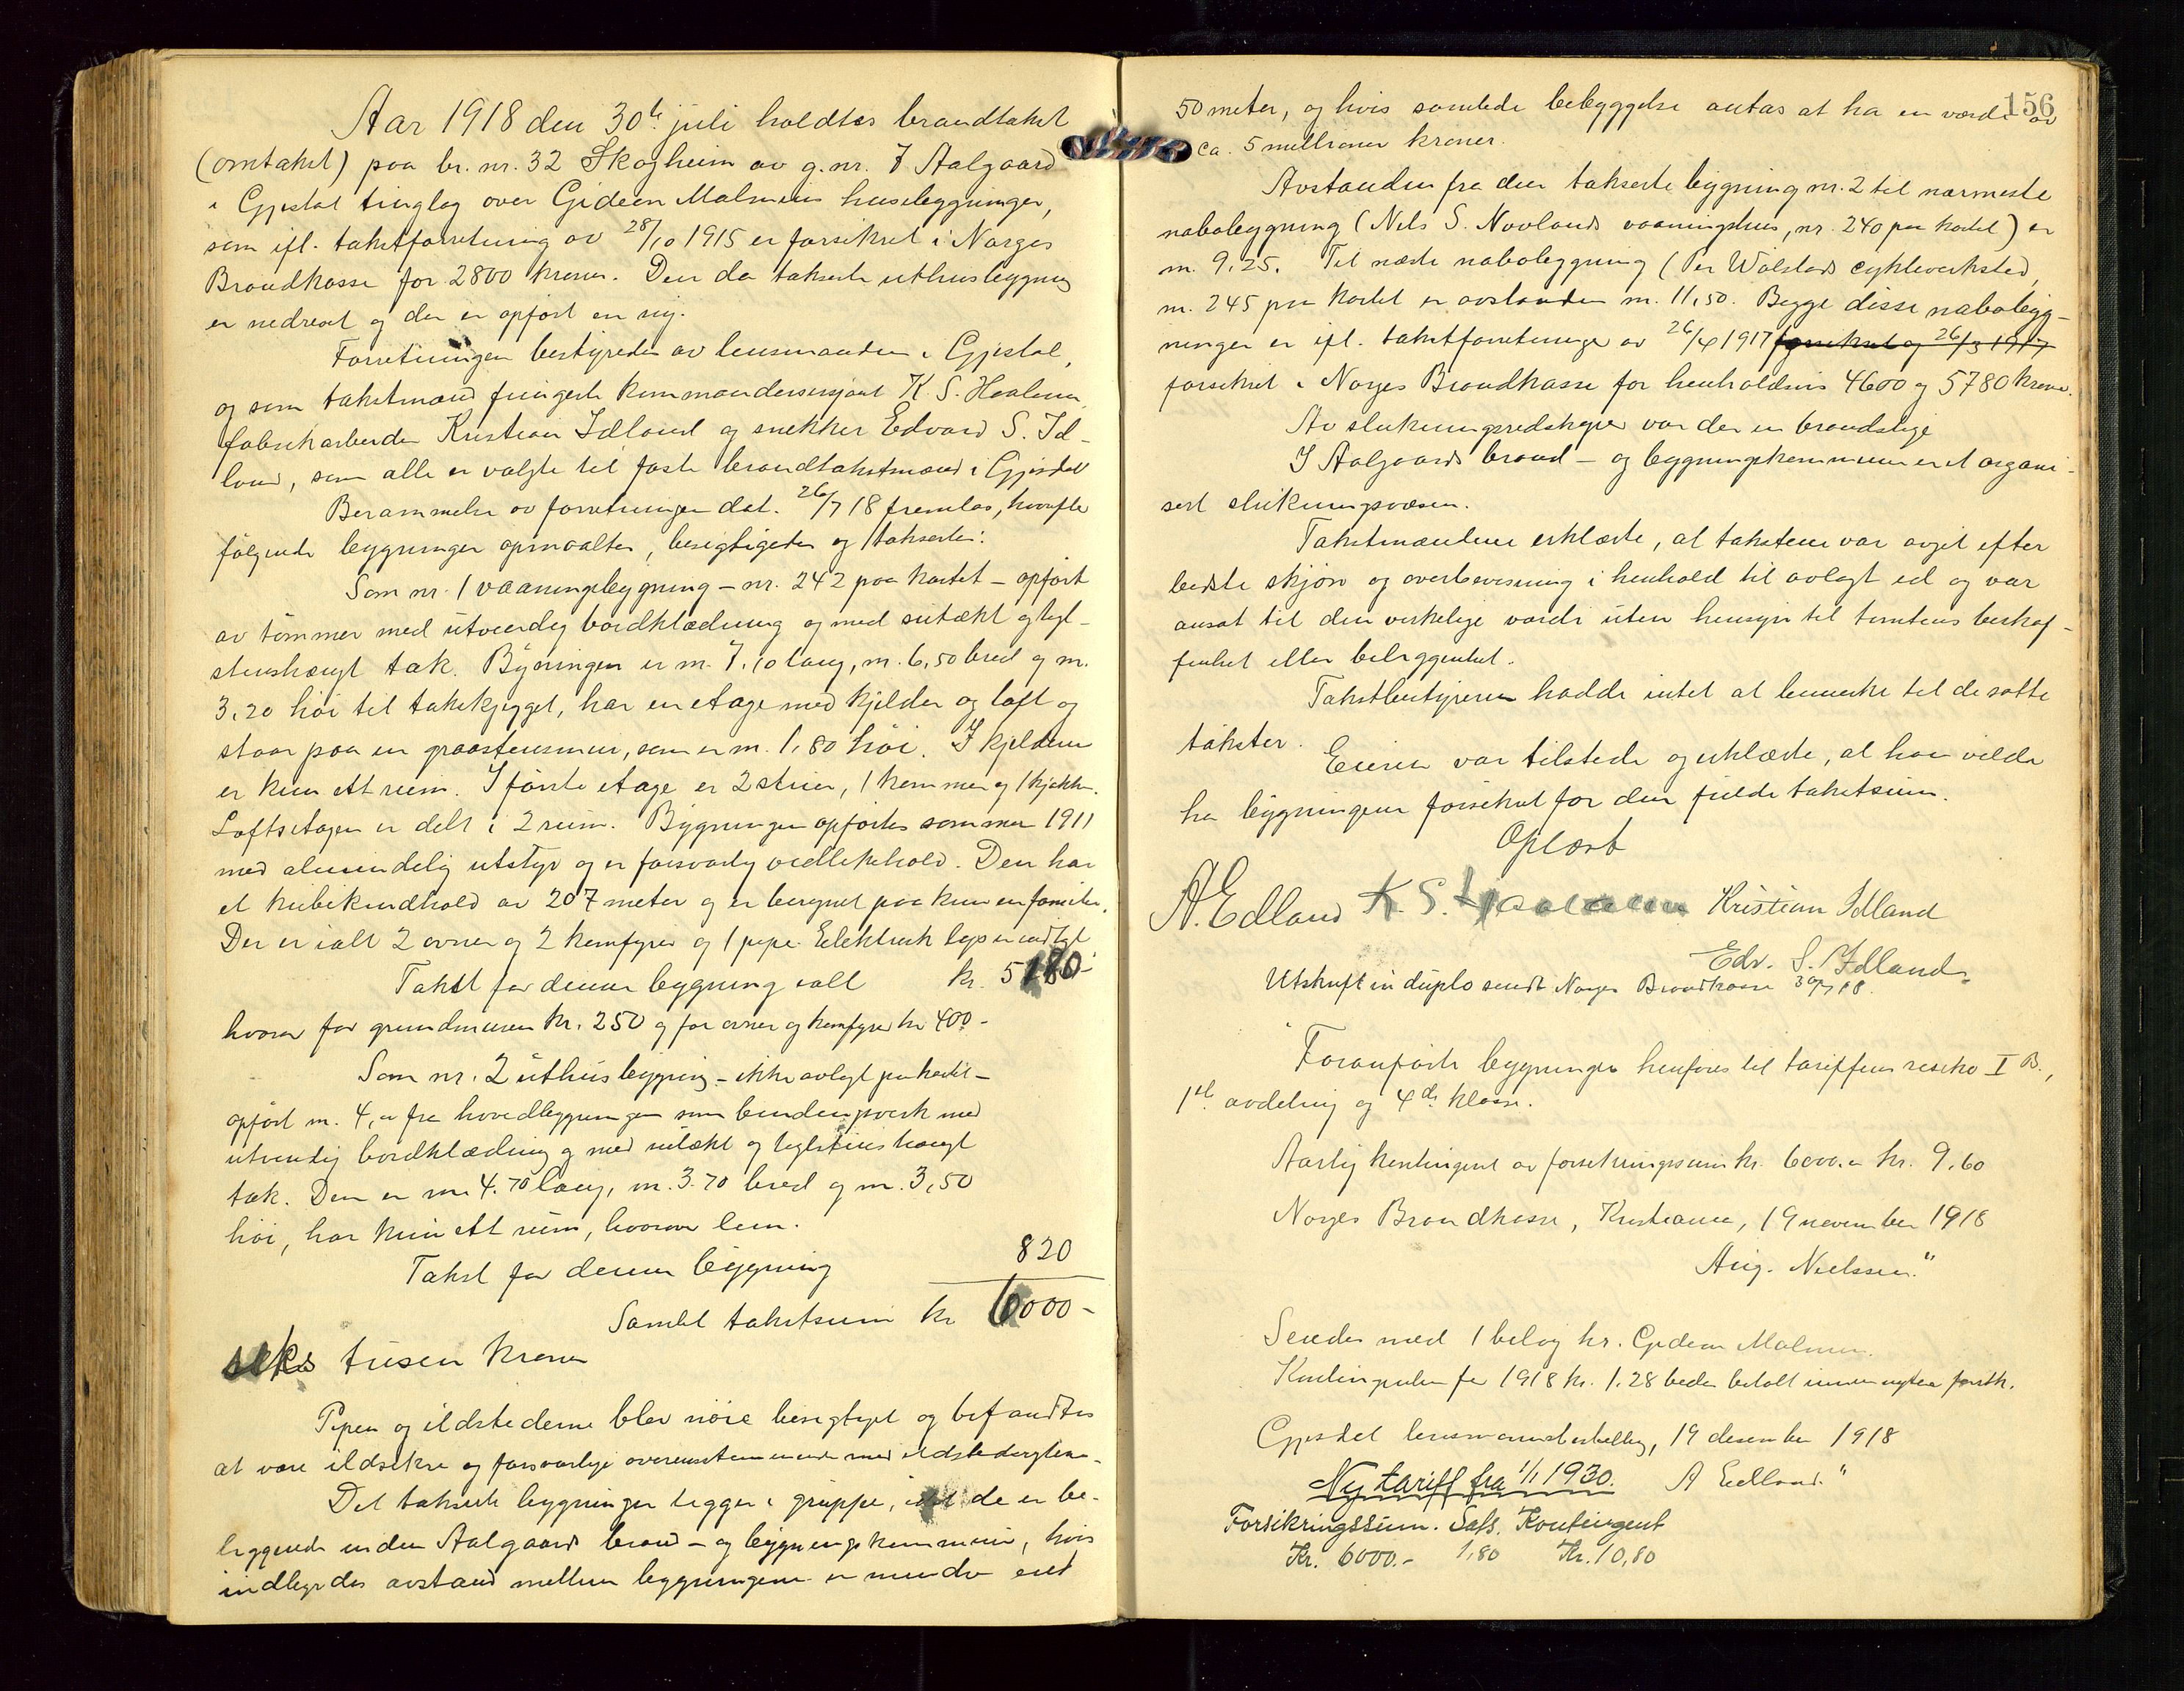 Aar 1918 den 30te juli holdtes brandtakst
(omtakst) paa br. nr. 32 Skogheim av g. nr. 7 Aalgaard
i Gjestal tinglag over Gideon Malmeins husebygginger,
som ifl. takstforretning av 28/10 1915 er forsikret i Norges
Brandkasse for 2800 kroner. Den da takserte uthusbygning
er nedrevet og der er opført en ny.
Forretningen bestyredes av lensmanden i Gjestal,
og som takstmænd fungerte kommandersersjant K. S. Haaland
fabrikarbeider Kristian Idland og snekker Edvard S. Id-
land, som alle er valgte til faste brandtakstmænd i Gjesdal
Berammelse av forretningen dat. 26/7 18 fremlas, hvorefter
følgende bygninger opmaaltes, besigtigedes og takserte:
Som nr. 1 vaaningsbygning – nr. 242 paa kartet – opført
av tømmer med utvendig bordklædning og med sutækt og tegl-
stenshængt tak. Bygningen er m. 7,10 lang, m. 6,50 bred og m.
3,20 høi til takskjegget, har en etage med kjelder og loft og
staar paa en graastensmur, som er m. 1,80 høi. I kjelderen
er kun ett rum. I første etage er 2 stuer, 1 kammer og 1 kjøkken.
Loftsetagen er delt i 2 rum. Bygningen opførtes sommer 1911
med almindelig utstyr og er forsvarlig vedlikehold. Den har
et kubikindhold av 207 meter og er beregnet paa kun en familie.
Der er ialt 2 ovner og 2 komfyrer og 1 pipe. Elektrisk lys er indlagt
Takst for denne bygning ialt kr. 5180-
hvorav for grundmuren kr. 250 og for ovner og komfyrer kr 400-
Som nr. 2 uthusbygning – ikke avlagt paa kartet –
opført m. 4, fra hovedbygningen som bindingsverk med
utvendig bordklædning og med sutækt og teglstens hængt
tak. Den er m. 4.70 lang, m. 3.70 bred og m. 3,50
høi, har kun ett rum, hvorover lem.
Takst for denne bygning 820
Samlet takstsum kr 6000-
seks tusen kroner
Pipen og ildstederne blev nøie besigtiget og befandtes
at være ildsikre og forsvarlige overensstemmende med ildstedsreglene.
Det takserte bygninger ligger i gruppe, idet de er be-
liggende inden Aalgaards brand- og bygningskommune, hvis
indbyrdes avstand mellem bygningene er mindre end
156
50 meter, og hvis samlede bebyggelse antas at ha en værdi av
ca. 5 millioner kroner.
Avstanden fra den takserte bygning nr. 2 til nærmeste
nabobygning (Nils S. Novlands vaaningshus, nr. 240 paa kartet) er
m. 9,25. Til næste nabobygning (Per Wolstads cykleverksted,
nr. 245 paa kartet er avstanden m. 11,50. Begge disse nabobygg-
ninger er ifl. takstforretninger av 26/4 1917 forsikret og 26/3 1917
forsikret i Norges Brandkasse for henholdsvis 4600 og 5780 kroner.
Av slukningsredskaper var der en brandstige
I Aalgaards brand- og bygningskommune er et organi-
sert slukningsvæsen.
Takstmændene erklærte, at takstene var avgit efter
bedste skjøn og overbevisning i henhold til avlagt ed og var
ansat til den virkelige værdi uten hensyn til tomtens beskaf-
fenhet eller beliggenhet.
Takstbestyreren hadde intet at bemerke til de satte
takster.
Eieren var tilstede og erklærte, at han vilde
ha bygningene forsikret for den fulde takstsum.
Oplæst
A. Edland K. S. Haaland Kristian Idland
Edv. S. Idland
Utskrift in duplo sendt Norges Brandkasse 30/7 18.
"Foranførte bygninger henføres til tariffens risiko I B.,
1ste avdeling og 4de klasse.
Aarlig kontingent av forsikringssum kr. 6000.- kr. 9,60
Norges Brandkasse, Kristiania, 19 november 1918
Aug. Nielssen."
Sendes med 1 bilag hr. Gideon Malmein.
Kontingenten for 1918 kr. 1.28 bedes betalt innen nytaar forstk.
Gjesdal lensmannsbestilling, 19 desember 1918
A Edland."
Ny tariff fra 1/1 1930.
Forsikringssum. Sats. Kontingent
Kr. 6000.- 1,80 Kr. 10,80